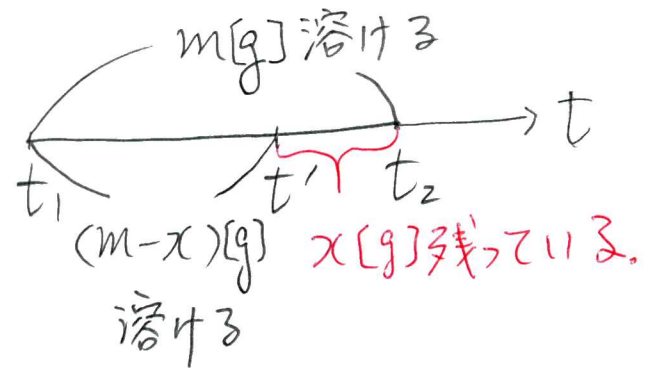 m[g]溶ける
t
t₁
t'
t₂
(m-x)[g]
溶ける
x[g]残っている。